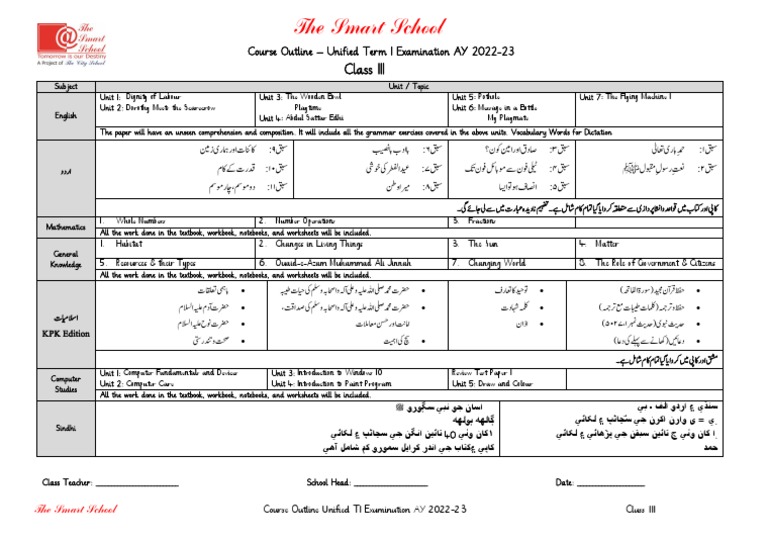 The Smart School
The
Smart
School
Tomorrow is our Destiny
A Project of The City School
Course Outline – Unified Term I Examination AY 2022-23
Class III
Subject
Unit / Topic
English
Unit 1: Dignity of Labour
Unit 2: Dorothy Meets the Scarecrow
Unit 3: The Wooden Bowl
Playtime
Unit 4: Abdul Sattar Edhi
Unit 5: Pothole
Unit 6: Message in a Bottle
My Playmate
Unit 7: The Flying Machine I
The paper will have an unseen comprehension and composition. It will include all the grammar exercises covered in the above units. Vocabulary Words for Dictation
اردو
سبق۱: حمدِ باری تعالیٰ
سبق۲: نعتِ رسول مقبول ﷺ
سبق۳: صادق اور امین کون؟
سبق۴: ٹیلی فون سے موبائل فون تک
سبق۵: انصاف ہو تو ایسا
سبق۶: با ادب با نصیب
سبق۷: عید الفطر کی خوشی
سبق۸: میرا وطن
سبق۹: کائنات اور ہماری زمین
سبق۱۰: قدرت کے کام
سبق۱۱: دو موسم، چار موسم
Mathematics
1. Whole Numbers
2. Number Operations
3. Fractions
All the work done in the textbook, workbook, notebooks, and worksheets will be included.
General
Knowledge
1. Habitat
2. Changes in Living Things
3. The Sun
4. Matter
5. Resources & their Types
6. Quaid-e-Azam Muhammad Ali Jinnah
7. Changing World
8. The Role of Government & Citizens
All the work done in the textbook, workbook, notebooks, and worksheets will be included.
اسلامیات
KPK Edition
حفظ قرآن مجید (سورۃ الفاتحہ)
حفظ و ترجمہ (کلمات طیبات مع ترجمہ)
دعائیں (کھانے سے پہلے کی دعا)
توحید کا تعارف
کلمہ شہادت
اذان
حضرت محمد صلی اللہ علیہ وعلی آلہ واصحابہ وسلم کی حیات طیبہ
حضرت محمد صلی اللہ علیہ وعلی آلہ واصحابہ وسلم کی صداقت،
امانت اور حسن معاملات
سچ کی اہمیت
باہمی تعلقات
حضرت آدم علیہ السلام
حضرت نوح علیہ السلام
صحت و تندرستی
مشق اور کاپی میں کروایا گیا تمام کام شامل ہے۔
Computer
Studies
Unit 1: Computer Fundamentals and Devices
Unit 2: Computer Care
Unit 3: Introduction to Windows 10
Unit 4: Introduction to Paint Program
Review Test Paper 1
Unit 5: Draw and Colour
All the work done in the textbook, workbook, notebooks, and worksheets will be included.
Sindhi
حمد
اسان جو نبي سڳورو ﷺ
Class Teacher: ____________________
School Head: ____________________
Date: ____________________
The Smart School
Course Outline Unified T1 Examination AY 2022-23
Class III